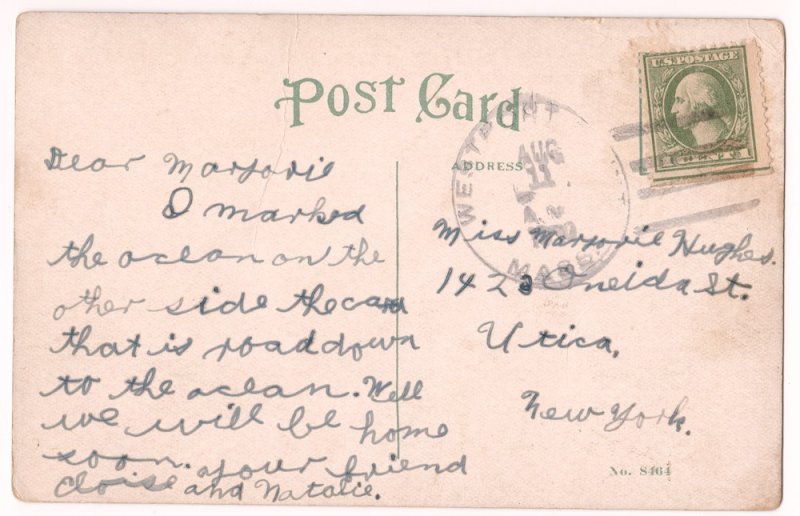 POST CARD
U.S. POSTAGE
CENTS
WESTPORT
AUG
11
MASS
ADDRESS
Dear Marjorie
I marked
the ocean on the
other side the card
that is road down
to the ocean. Well
we will be home
soon. your friend
and Natalie.
Miss Marjorie Hughes.
1423 Oneida St.
Utica,
New York.
No. 8464